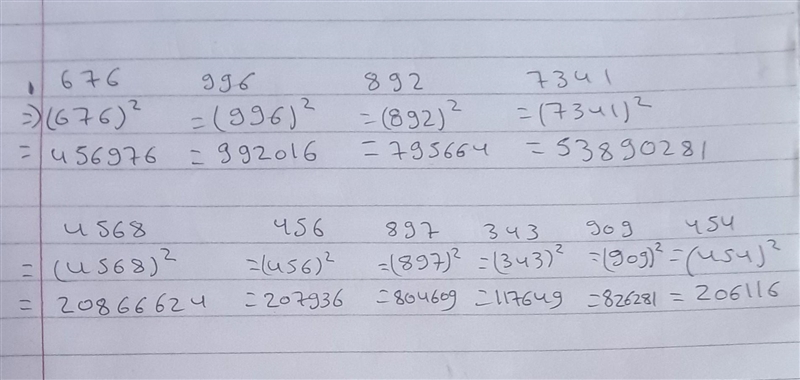 676 996 892 7341
=)(676)² =(996)² =(892)² =(7341)²
= 456976 = 992016 = 795664 = 53890281
4568 456 897 343 909 454
= (4568)² =(456)² =(897)² =(343)² =(909)² =(454)²
= 20866624 =207936 =804609 =117649 =826281 = 206116